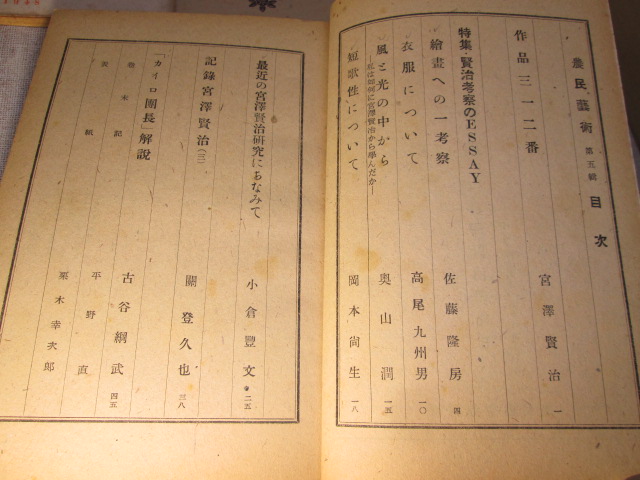 農民藝術 第五輯 目次
作品三一二番 宮澤賢治 一
特集・賢治考察のESSAY
繪畫への一考察 佐藤隆房 四
衣服について 高尾九州男 一〇
風と光の中から 奥山潤 一五
私は如何に宮澤賢治から學んだか
短歌性について 岡本尙生 一八
最近の宮澤賢治研究にちなみて 小倉豐文 二五
記錄宮澤賢治(三) 關登久也 三八
「カイロ團長」解說 古谷綱武 四五
卷末記 平野直
表紙 栗木幸次郎